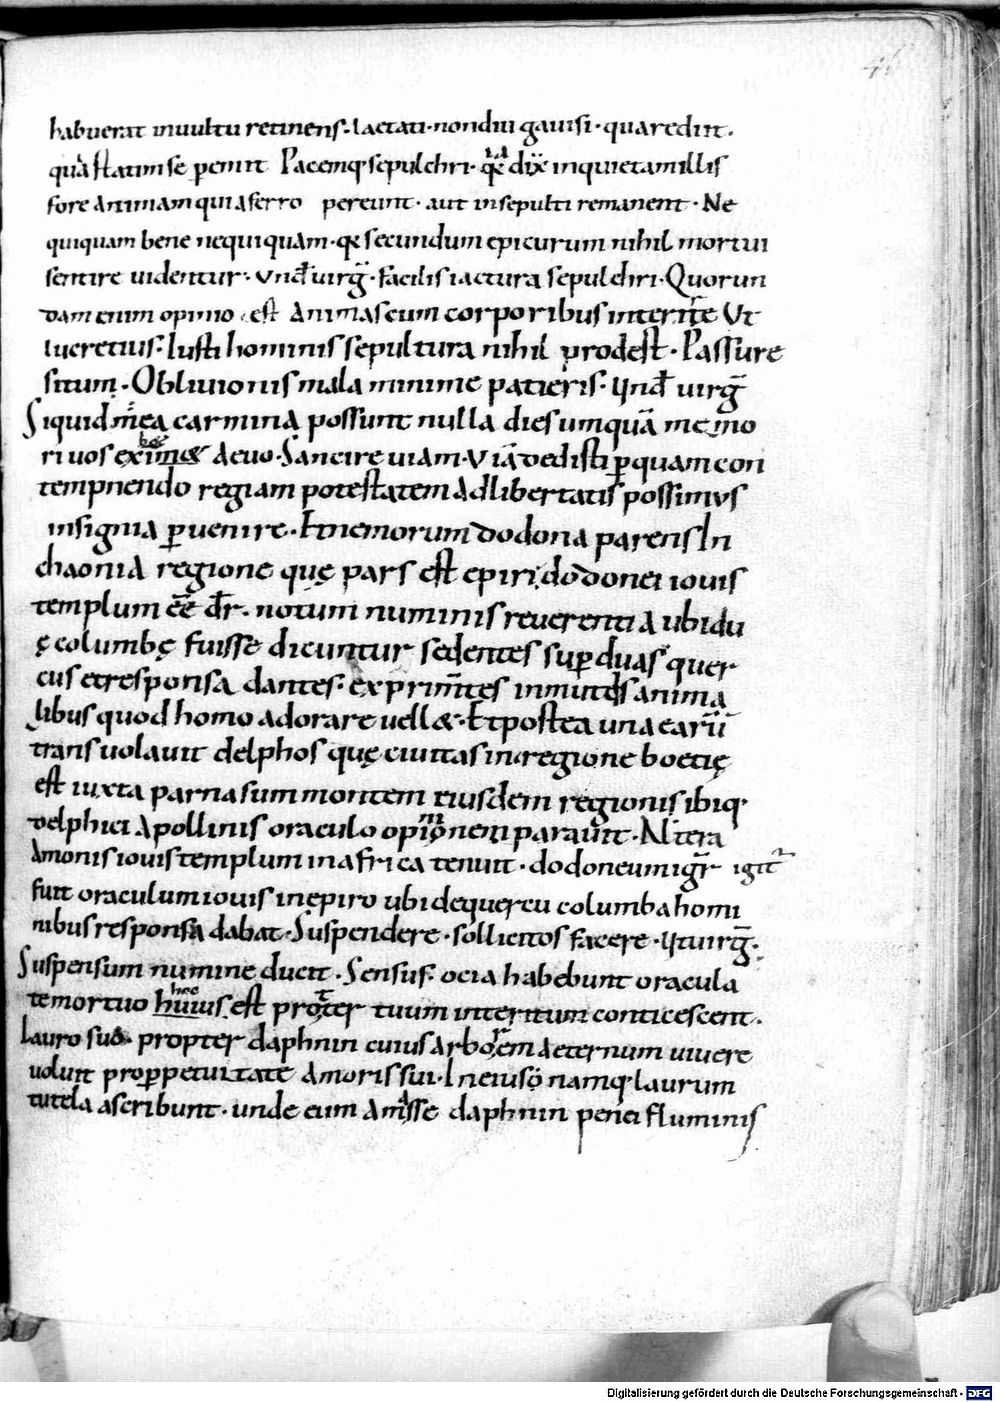 46
habuerat inuultu retinens · Lactati · nondū gauisi · quarediit ·
quā statim se penit Pacemq; sepulchri · qa dix inquietam illis
fore animam qui aferro pereunt · aut insepulti remanent · Ne
quiquam bene nequiquam · qa secundum epicurum nihil mortui
sentire uidentur · vnđ uirg̅ · Facilis iactura sepulchri · Quorun
dam enim opinio est Animas cum corporibus interire Vt
lucretius · Iusti hominis sepultura nihil prodest · Passure
situm · Obliuionis mala minime patieris · Unđ uirg̅
Siquid mea carmina possunt nulla dies umquā memo
ri uos eximet Aeuo · Sancire uiam · Viā dedisti p̲quam con
tempnendo regiam potestatem Ad libertatis possimus
insignia p̲uenire · Et nemorum dodona parens In
chaonia regione quę pars est epiri dodonei iouis
templum ēē dr̄ · notum numinis reuerentia ubi du
ę columbę fuisse dicuntur sedentes sup̲ duas quer
cus et responsa dantes · exprim̅tes inmut̅s anima
libus quod homo adorare uell& · Et postea una earū
transuolauit delphos quę ciuitas in regione boetię
est iuxta parnasum montem eiusdem regionis ibiq;
delphici Apollinis oraculo opinionem parauit · Altera
Amonis iouis templum in africa tenuit · dodoneum igr̄ igit̄
fuit oraculum iouis in epiro ubi de quercu columba homi
nibus responsa dabat · Suspendere · sollicitos facere · Ut uirg̅ ·
Suspensum numine ducit · Sensus · ocia habebunt oracula
te mortuo huius hoc est propter tuum interitum conticescent ·
Lauro sua · propter daphnin cuius arborem aeternum uiuere
uoluit prop̲petuitate Amoris sui · In eius namq; laurum
tutela ascribunt · unde cum Amasse daphnin penei fluminis
Digitalisierung gefördert durch die Deutsche Forschungsgemeinschaft - DFG